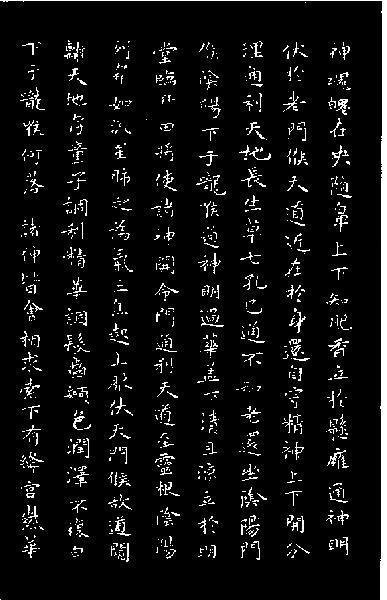 神魂魄在央隨鼻上下知肥香立於懸雍通神明
伏於老門候天道近在於身還自守精神上下開分
理通利天地長生草七孔已通不知老還坐陰陽門
候陰陽下于嚨喉通神明過華蓋下清且涼立於明
堂臨丹田將使諸神開命門通利天道至靈根陰陽
列布如流星肺之為氣三焦起上服伏天門候故道闚
天地存童子調利精華調髮齒顏色潤澤不復白
下于嚨喉何落 諸神皆會相求索下有絳宮紫華